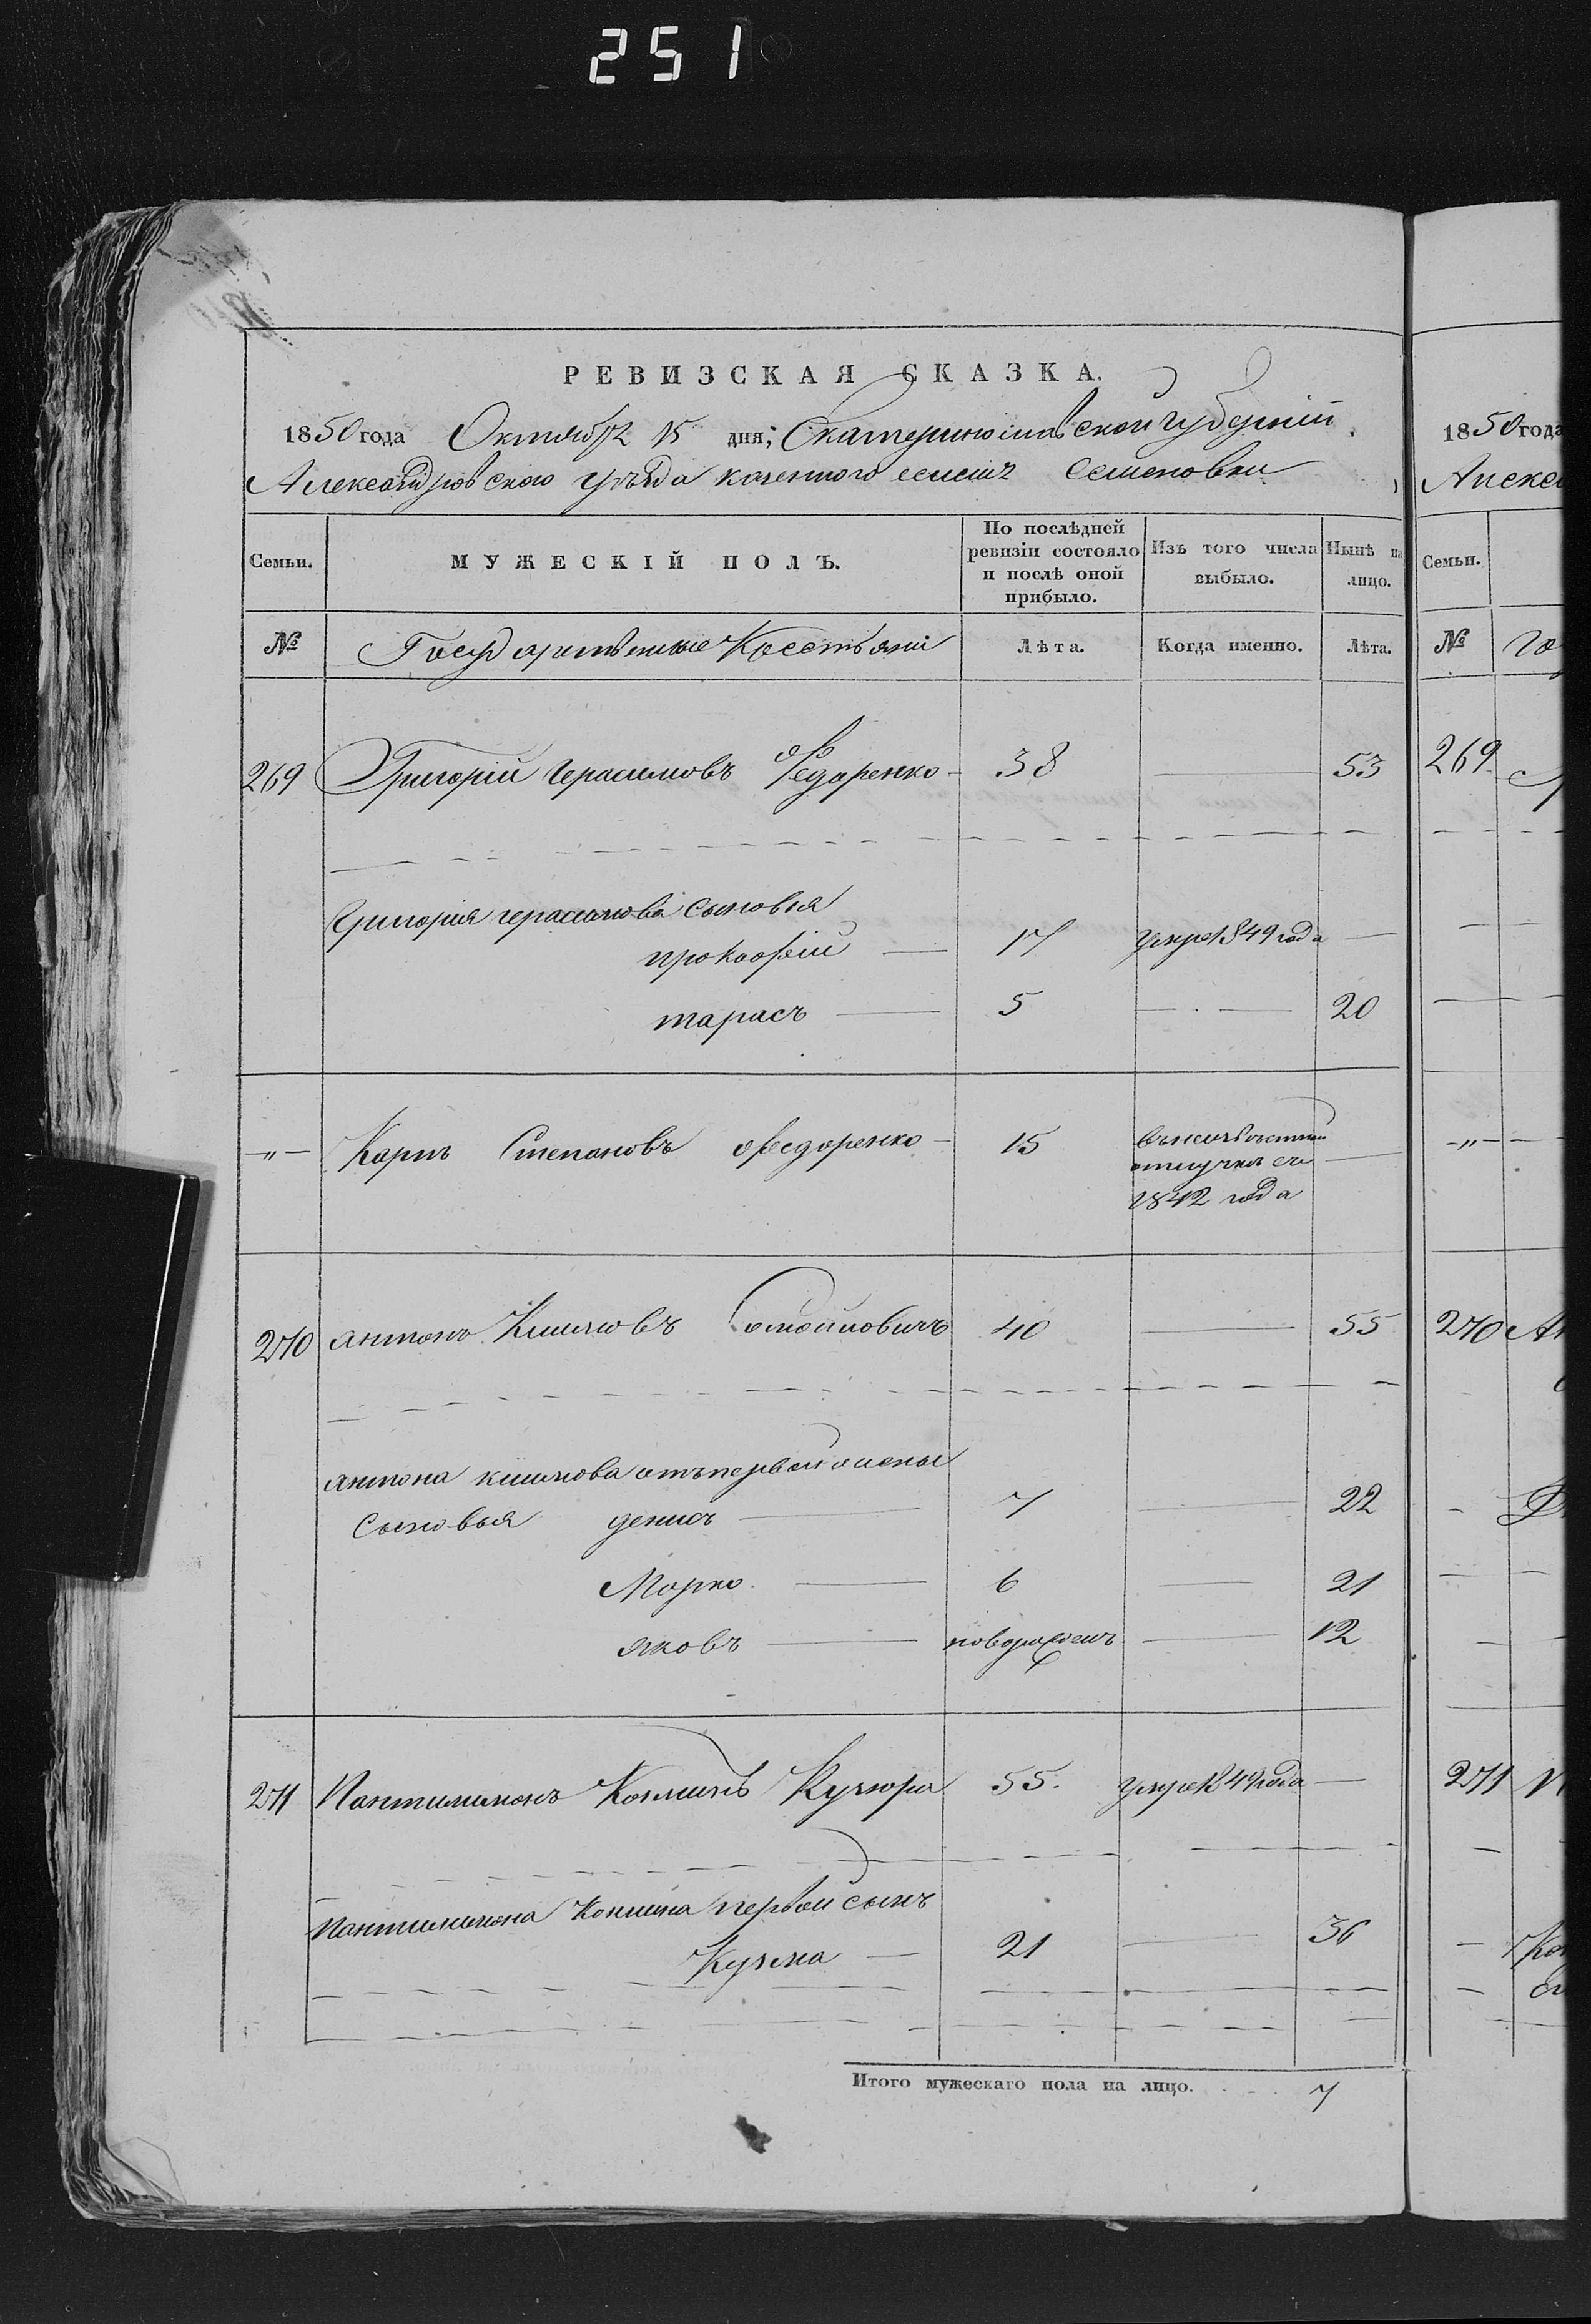 251
РЕВИЗСКАЯ СКАЗКА.
1850 года Октября 15 дня; Екатеринославской губерніи
Александровского уѣзда казенного селенія Семеновки
Семьи. МУЖЕСКІЙ ПОЛЪ. По послѣдней ревизіи состояло и послѣ оной прибыло. Изъ того числа выбыло. Нынѣ на лицо.
№ Государственные Крестьяни Лѣта. Когда именно. Лѣта.
269 Григорій Герасимовъ Федоренко 38 — 53
Григорія герасимова сыновья
прокофій — 17 умре 1849 года —
тарасъ — 5 — 20
—"— Карпъ Степановъ Федоренко 15 въ неизвѣстной
отлучке съ —
1842 года
270 антонъ Климовъ 40 — 55
антона климова отъ первой жены
Сыновья денисъ — 7 — 22
Марко — 6 — 21
яковъ — новорожденъ — 12
271 Пантилимонъ 55. умре 1849 года —
Пантилимона первой сынъ
Кузма — 21 — 36
Итого мужескаго пола на лицо. 7
1850 года
Алекса
Семьи.
№ го
269
—"—
270 Ан
271 П